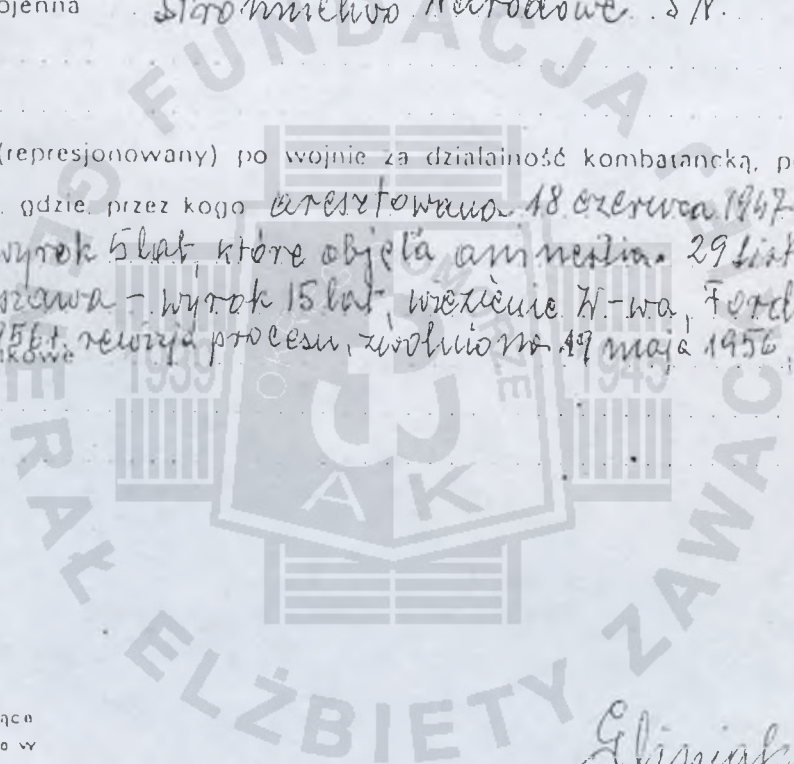 ojenna Stronnictwo Narodowe S N.
(represjonowany) po wojnie za działalność kombatancką, p
gdzie, przez kogo aresztowana 18 czerwca 1947
wyrok 5 lat, które objęła amnestia. 29 list
szawa - wyrok 15 lat, więzienie W-wa, Ford
56 r. rewizja procesu, zwolniono 19 maja 1956
kowe
1939 1945
AK
FUNDACJA GENERAŁ ELŻBIETY ZAWAC
ące
o w